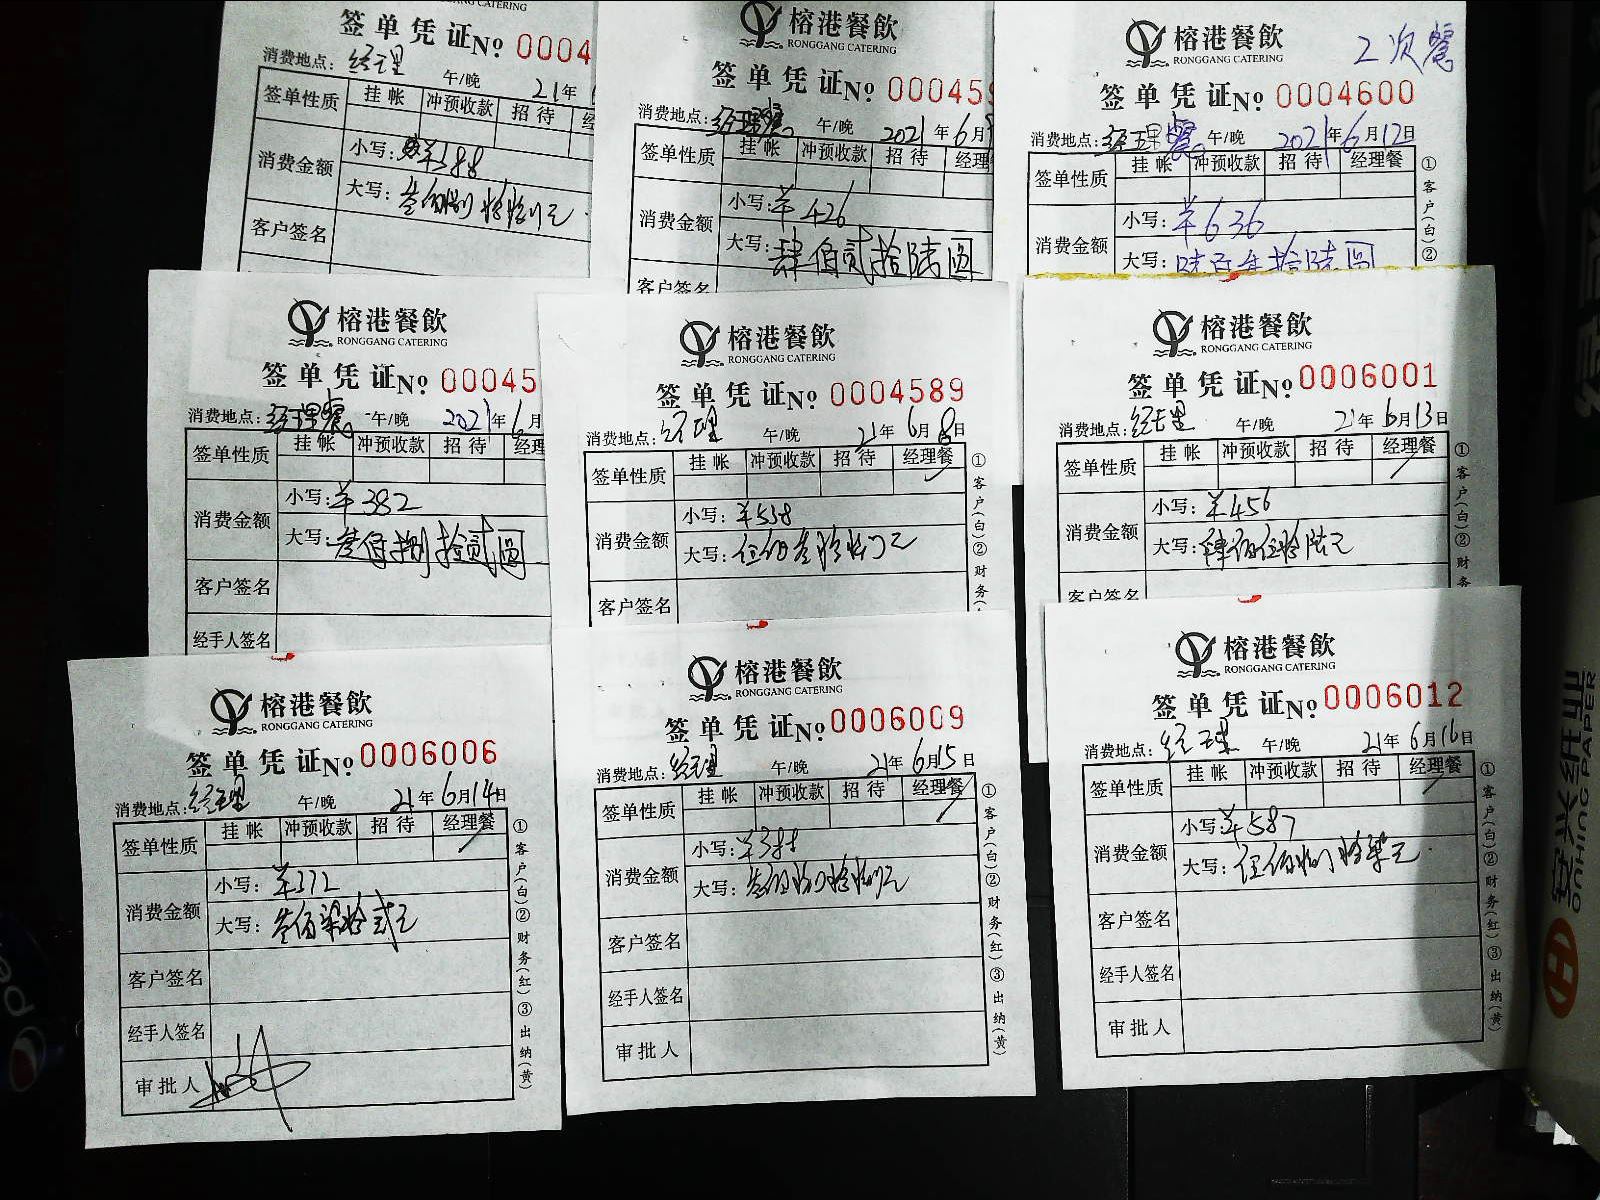 CATERING
签单凭证 No 0004
消费地点: 经理 午/晚 21年
签单性质 挂帐 冲预收款 招待
消费金额 小写: ¥388
大写: 叁佰捌拾捌元
客户签名
榕港餐飲
RONGGANG CATERING
签单凭证 No 00045
消费地点: 经理餐 午/晚 2021年6月
签单性质 挂帐 冲预收款 招待 经理
消费金额 小写: ¥426
大写: 肆佰贰拾陆圆
客户签名
2次餐
榕港餐飲
RONGGANG CATERING
签单凭证 No 0004600
消费地点: 经理餐 午/晚 2021年6月12日
签单性质 挂帐 冲预收款 招待 经理餐
消费金额 小写: ¥636
大写: 陆百叁拾陆圆
①客户(白)②
榕港餐飲
RONGGANG CATERING
签单凭证 No 00045
消费地点: 经理餐 午/晚 2021年6月
签单性质 挂帐 冲预收款 招待 经理
消费金额 小写: ¥382
大写: 叁佰捌拾贰圆
客户签名
经手人签名
榕港餐飲
RONGGANG CATERING
签单凭证 No 0004589
消费地点: 经理 午/晚 21年6月8日
签单性质 挂帐 冲预收款 招待 经理餐
消费金额 小写: ¥538
大写: 伍佰叁拾捌元
客户签名
①客户(白)②财务(
榕港餐飲
RONGGANG CATERING
签单凭证 No 0006001
消费地点: 经理 午/晚 21年6月13日
签单性质 挂帐 冲预收款 招待 经理餐
消费金额 小写: ¥456
大写: 肆佰伍拾陆元
客户签名
①客户(白)②财务
榕港餐飲
RONGGANG CATERING
签单凭证 No 0006006
消费地点: 经理 午/晚 21年6月14日
签单性质 挂帐 冲预收款 招待 经理餐
消费金额 小写: ¥372
大写: 叁佰柒拾贰元
客户签名
经手人签名
审批人
①客户(白)②财务(红)③出纳(黄)
榕港餐飲
RONGGANG CATERING
签单凭证 No 0006009
消费地点: 经理 午/晚 21年6月15日
签单性质 挂帐 冲预收款 招待 经理餐
消费金额 小写: ¥388
大写: 叁佰捌拾捌元
客户签名
经手人签名
审批人
①客户(白)②财务(红)③出纳(黄)
榕港餐飲
RONGGANG CATERING
签单凭证 No 0006012
消费地点: 经理 午/晚 21年6月16日
签单性质 挂帐 冲预收款 招待 经理餐
消费金额 小写: ¥587
大写: 伍佰捌拾柒元
客户签名
经手人签名
审批人
①客户(白)②财务(红)③出纳(黄)
安兴纸业
ONHING PAPER